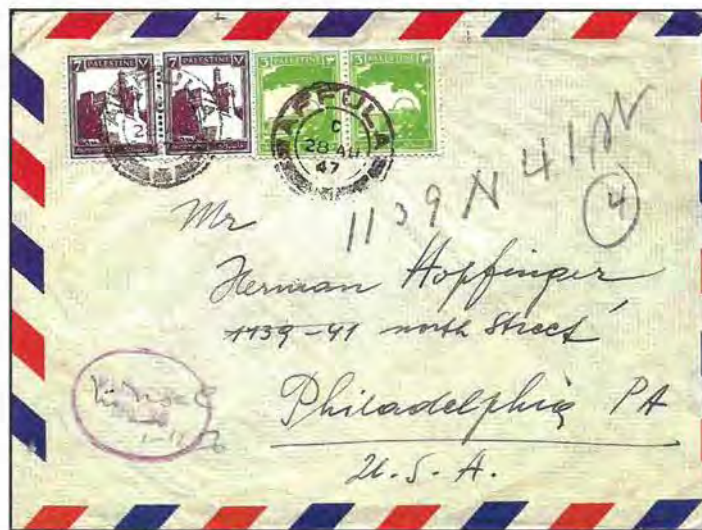 7 PALESTINE ٧
7 PALESTINE ٧
3 PALESTINE ٣
3 PALESTINE ٣
AFFULA
C
28 AU
47
1139 N 41
4
Mr
Herman Hopfinger
1139-41 north Street
Philadelphia PA
U.S.A.